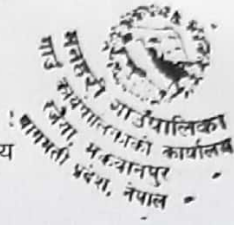 मनहरी गाउँपालिका
गाउँ कार्यपालिकाको कार्यालय
रजैया, मकवानपुर
बागमती प्रदेश, नेपाल
य